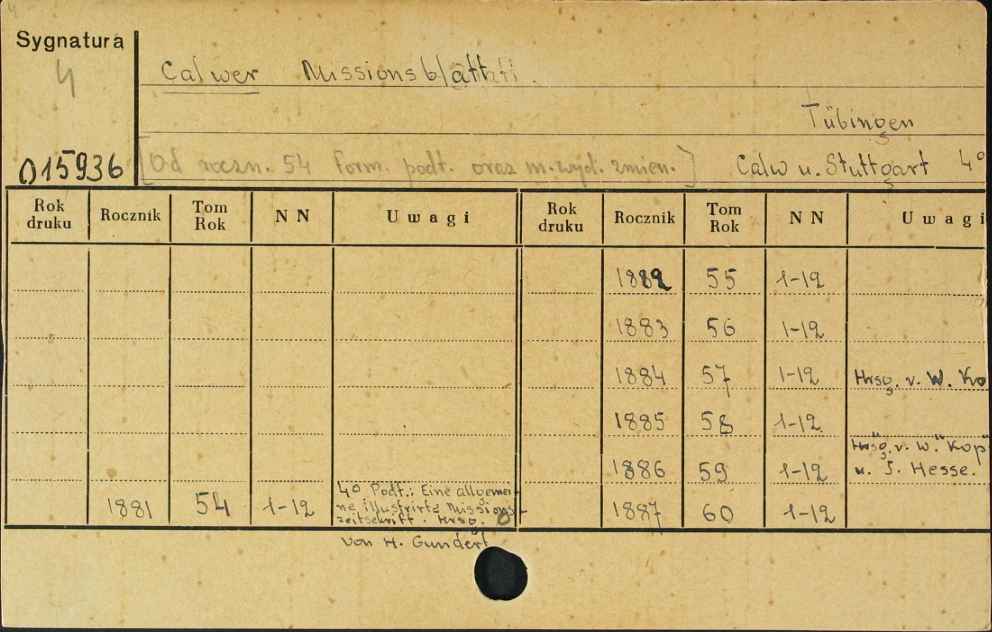 Sygnatura
4
Calwer Missionsblatt
Tübingen
015936
[Od roczn. 54 form. podt. oraz m. wyd. zmien.]
Calw u. Stuttgart 4°
Rok druku Rocznik Tom Rok NN Uwagi Rok druku Rocznik Tom Rok NN Uwagi
1882 55 1-12
1883 56 1-12
1884 57 1-12 Hrsg. v. W. Ko
1885 58 1-12
Hrsg. v. W. Kop
1886 59 1-12 u. J. Hesse.
1881 54 1-12 4° Podt.: Eine allgemei-
ne illustrirte Missions-
zeitschrift. Hrsg.
von H. Gundert
1887 60 1-12